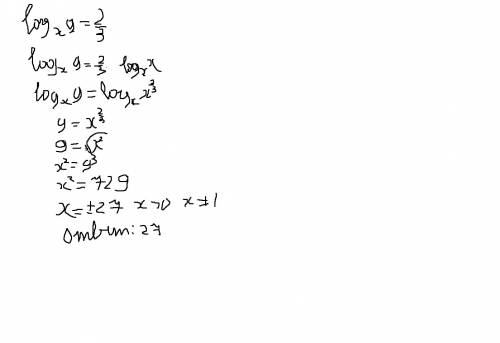 logₓ 9 = 2/3
logₓ 9 = 2/3 logₓ x
logₓ 9 = logₓ x^(2/3)
9 = x^(2/3)
9 = ∛x²
x² = 9³
x² = 729
x = ±27 x>0 x≠1
Ответ: 27